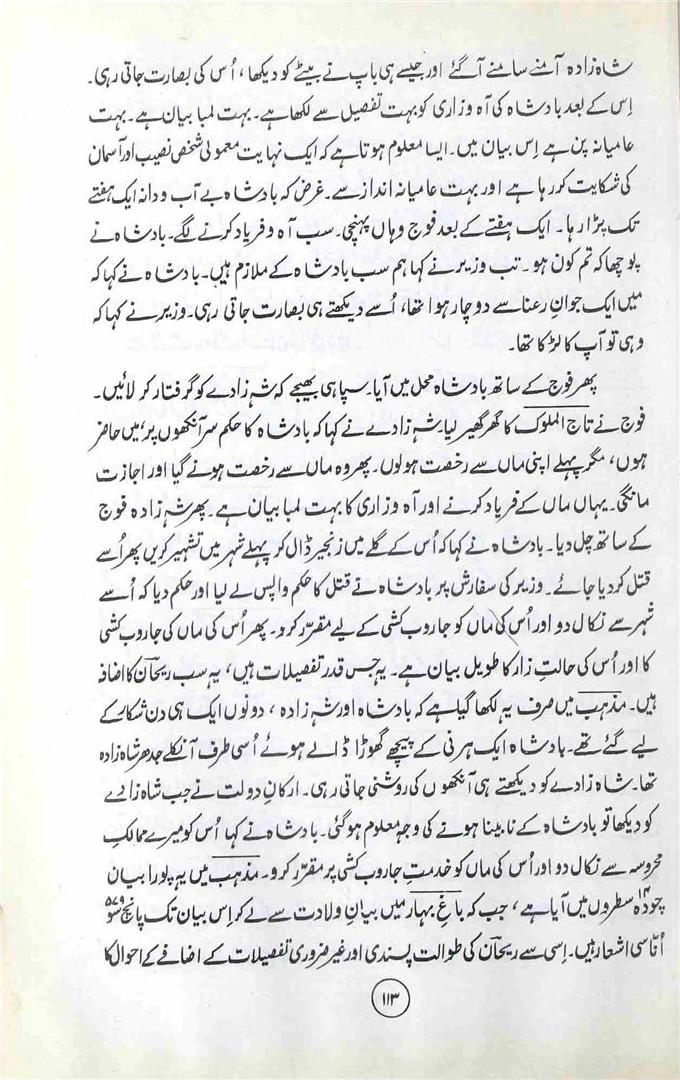 شاہ زادہ آمنے سامنے آگئے اور جیسے ہی باپ نے بیٹے کو دیکھا، اُس کی بصارت جاتی رہی۔
اِس کے بعد بادشاہ کی آہ وزاری کو بہت تفصیل سے لکھا ہے۔ بہت لمبا بیان ہے۔ بہت
عامیانہ پن ہے اِس بیان میں۔ ایسا معلوم ہوتا ہے کہ ایک نہایت معمولی شخص نصیب اور آسمان
کی شکایت کررہا ہے اور بہت عامیانہ انداز سے۔ غرض کہ بادشاہ بے آب ودانہ ایک ہفتے
تک پڑا رہا۔ ایک ہفتے کے بعد فوج وہاں پہنچی۔ سب آہ وفریاد کرنے لگے۔ بادشاہ نے
پوچھا کہ تم کون ہو۔ تب وزیر نے کہا ہم سب بادشاہ کے ملازم ہیں۔ بادشاہ نے کہا کہ
میں ایک جوانِ رعنا سے دوچار ہوا تھا، اُسے دیکھتے ہی بصارت جاتی رہی۔ وزیر نے کہا کہ
وہی تو آپ کا لڑکا تھا۔
پھر فوج کے ساتھ بادشاہ محل میں آیا۔ سپاہی بھیجے کہ شہ زادے کو گرفتار کر لائیں۔
فوج نے تاج الملوک کا گھر گھیر لیا۔ شہ زادے نے کہا کہ بادشاہ کا حکم سر آنکھوں پر، میں حاضر
ہوں، مگر پہلے اپنی ماں سے رخصت ہولوں۔ پھر وہ ماں سے رخصت ہونے گیا اور اجازت
مانگی۔ یہاں ماں کے فریاد کرنے اور آہ وزاری کا بہت لمبا بیان ہے۔ پھر شہ زادہ فوج
کے ساتھ چل دیا۔ بادشاہ نے کہا کہ اُس کے گلے میں زنجیر ڈال کر پہلے شہر میں تشہیر کریں پھر اُسے
قتل کردیا جائے۔ وزیر کی سفارش پر بادشاہ نے قتل کا حکم واپس لے لیا اور حکم دیا کہ اُسے
شہر سے نکال دو اور اُس کی ماں کو جاروب کشی کے لیے مقرّر کرو۔ پھر اُس کی ماں کی جاروب کشی
کا اور اُس کی حالتِ زار کا طویل بیان ہے۔ یہ جس قدر تفصیلات ہیں، یہ سب ریحانؔ کا اضافہ
ہیں۔ مذہب میں صرف یہ لکھا گیا ہے کہ بادشاہ اور شہ زادہ، دونوں ایک ہی دن شکار کے
لیے گئے تھے۔ بادشاہ ایک ہرنی کے پیچھے گھوڑا ڈالے ہوئے اُسی طرف آنکلے جدھر شاہ زادہ
تھا۔ شاہ زادے کو دیکھتے ہی آنکھوں کی روشنی جاتی رہی۔ ارکانِ دولت نے جب شاہ زادے
کو دیکھا تو بادشاہ کے نابینا ہونے کی وجہ معلوم ہوگئی۔ بادشاہ نے کہا اُس کو میرے ممالکِ
محروسہ سے نکال دو اور اُس کی ماں کو خدمتِ جاروب کشی پر مقرّر کرو۔ مذہب میں یہ پورا بیان
چودہ ۱۴ سطروں میں آیا ہے، جب کہ باغِ بہار میں بیانِ ولادت سے لے کر اِس بیان تک پانچ سو ۵۷۹
اُنّاسی اشعار ہیں۔ اِسی سے ریحانؔ کی طوالت پسندی اور غیر ضروری تفصیلات کے اضافے کے احوال کا
۱۱۳